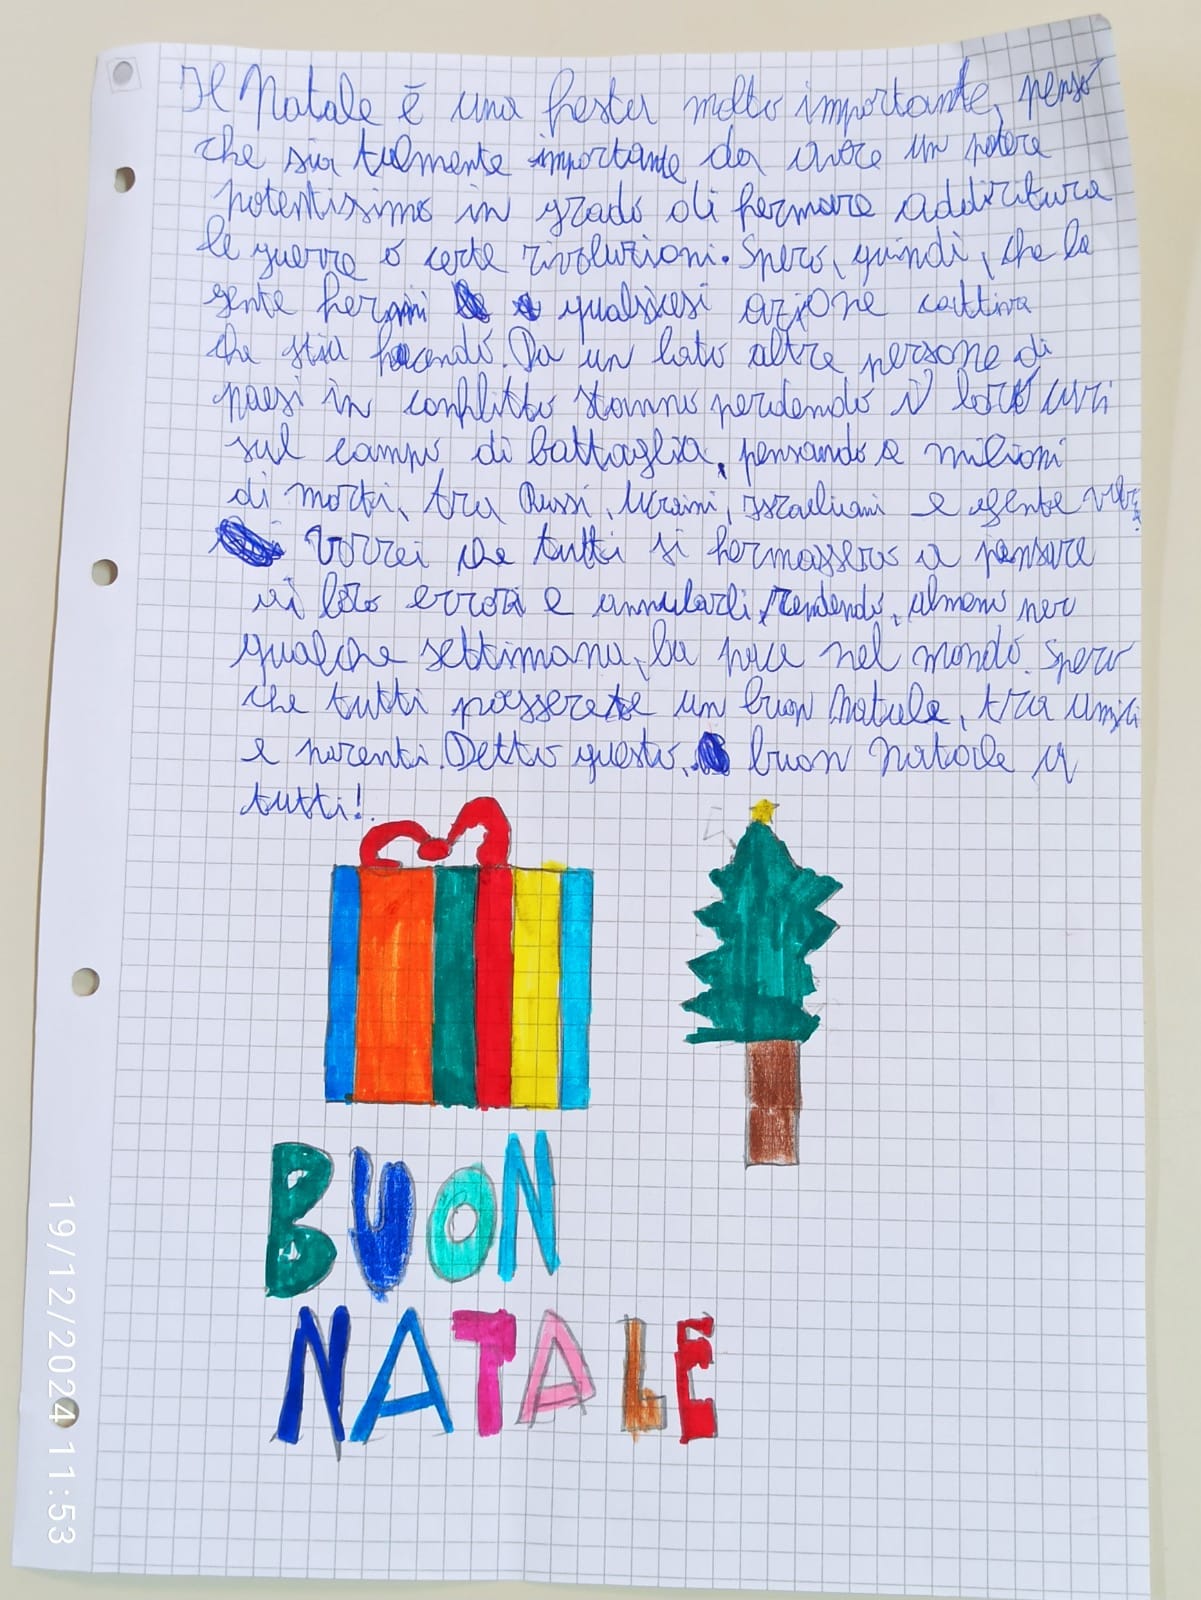 Il Natale è una festa molto importante, penso
che sia talmente importante da avere un potere
potentissimo in grado di fermare addiritura
le guerre o certe rivoluzioni. Spero, quindi, che la
gente fermi qualsiasi azione cattiva
che stia facendo. Da un lato altre persone di
paesi in conflitto stanno perdendo i loro cari
sul campo di battaglia, pensando a milioni
di morti, tra Russi, Ucraini, Israeliani e gente
Vorrei che tutti si fermassero a pensare
ai loro errori e annullarli, rendendo, almeno per
qualche settimana, la pace nel mondo. Spero
che tutti passerete un buon Natale, tra amici
e parenti. Detto questo, buon Natale a
tutti!
BUON
NATALE
19/12/2024 11:53